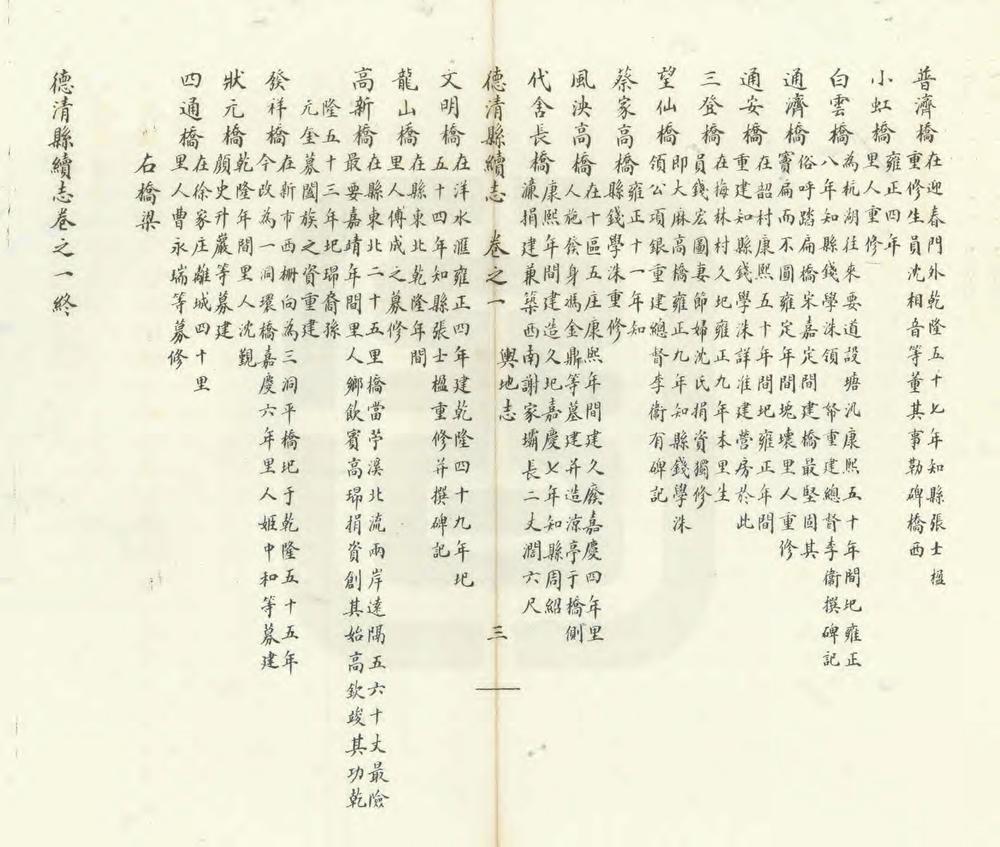 普濟橋在迎春門外乾隆五十七年知縣張士楹
重修生員沈相音等董其事勒碑橋西
小虹橋雍正四年
里人重修
白雲橋為杭湖往來要道設塘汛康熙五十年間圯雍正
八年知縣錢學洙領帑重建總督李衞撰碑記
通濟橋俗呼踏扁橋宋嘉定間建橋最堅固其
竇扁而不圓雍定年間塊壞里人重修
通安橋在韶村康熙五十年間圯雍正年間
重建知縣錢學洙詳准建營房於此
三登橋在梅林村久圯雍正九年本里生
員錢宏圖妻節婦沈氏捐資獨修
望仙橋即大麻高橋雍正九年知縣錢學洙
領公項銀重建總督李衞有碑記
蔡家高橋雍正十一年知
縣錢學洙重修
風泱高橋在十區五庄康熙年間建久廢嘉慶四年里
人施飱身馮金鼎等墓建并造涼亭于橋側
代舍長橋康熙年間建造久圯嘉慶七年知縣周紹
濂捐建兼築西南謝家壩長二丈濶六尺
德清縣續志 卷之一 輿地志 三
文明橋在洋水滙雍正四年建乾隆四十九年圯
五十四年知縣張士楹重修并撰碑記
龍山橋在縣東北乾隆年間
里人傅成之募修
高新橋在縣東北二十五里橋當苧溪北流兩岸達隔五六十丈最險
最要嘉靖年間里人鄉飲賓高瑞捐資創其始高欽竣其功乾
隆五十三年圯瑞裔孫
元奎募闔族之資重建
發祥橋在新市西柵向為三洞平橋圯于乾隆五十五年
今改為一洞環橋嘉慶六年里人姬中和等募建
狀元橋乾隆年間里人沈覲
顏史升嚴等募建
四通橋在徐家庄離城四十里
里人曹永瑞等募修
右橋梁
德清縣續志卷之一終